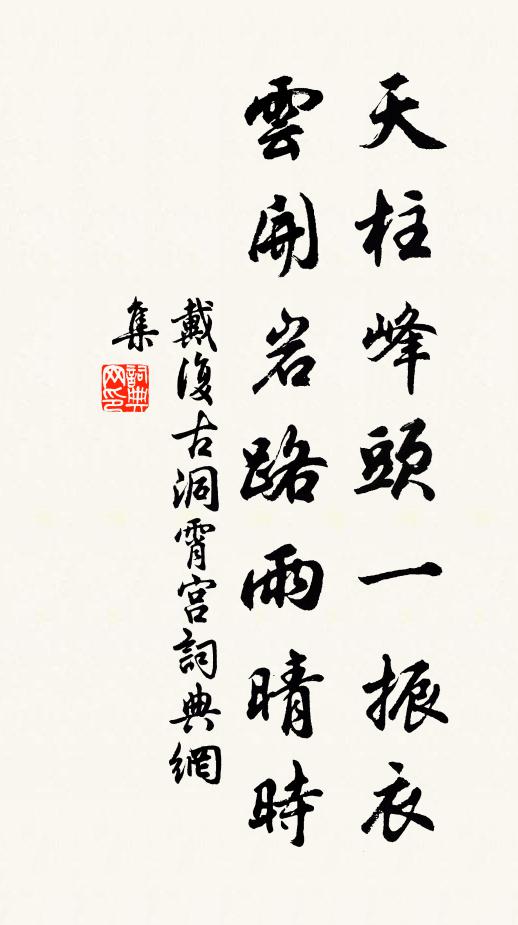 天柱峰頭一振衣
雲開岩路雨晴時
戴復古洞霄宮詞典網
集
詞典网印